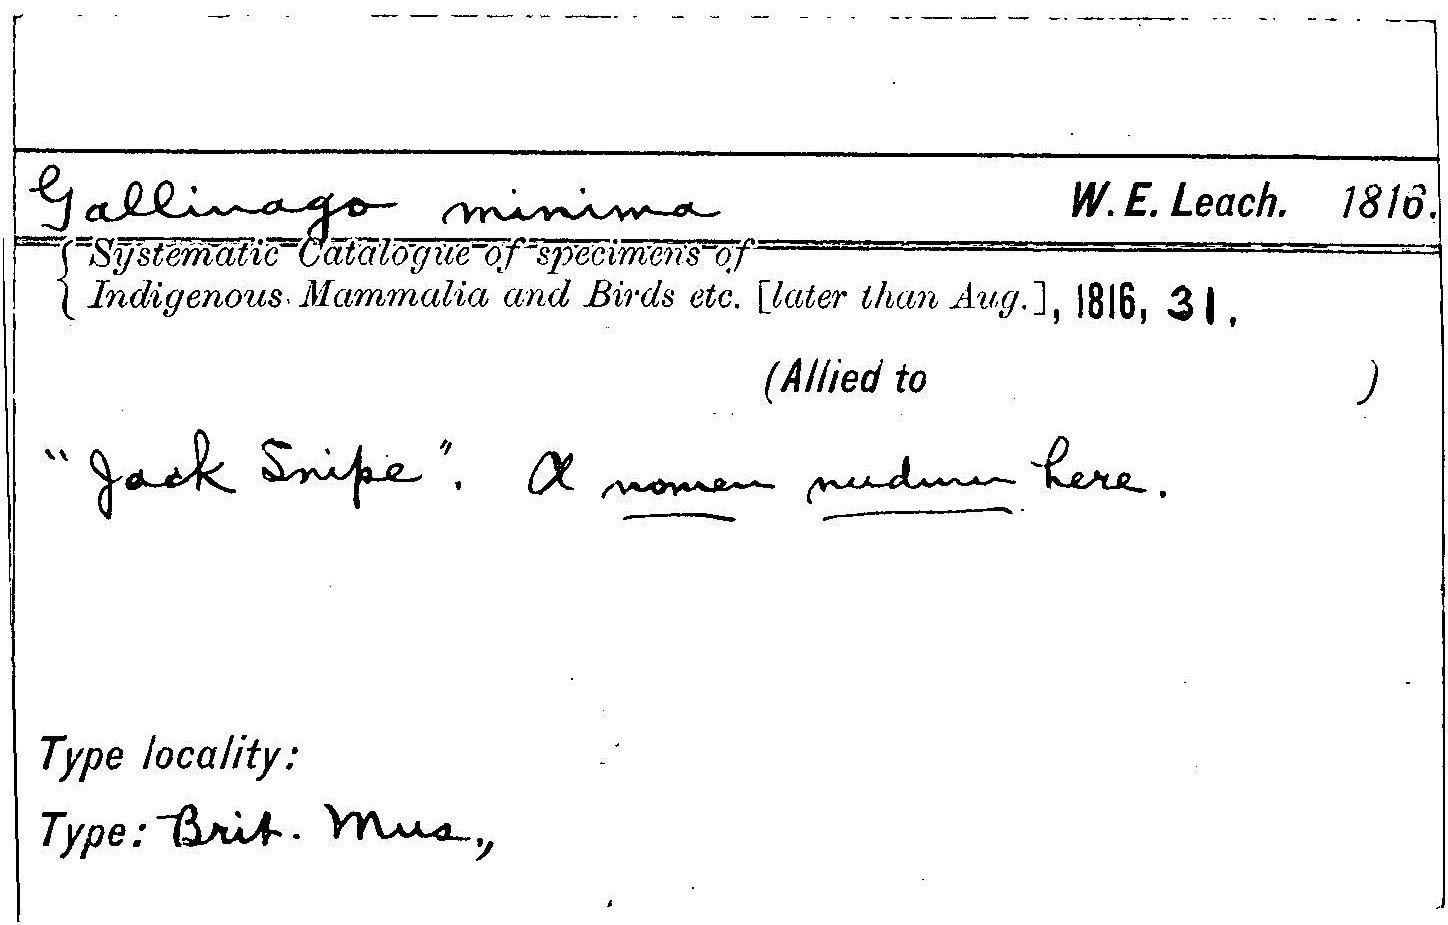 Gallinago minima W. E. Leach. 1816.
Systematic Catalogue of specimens of
Indigenous Mammalia and Birds etc. [later than Aug.], 1816, 31.
(Allied to )
"Jack Snipe". A nomen nudum here.
Type locality:
Type: Brit. Mus.,